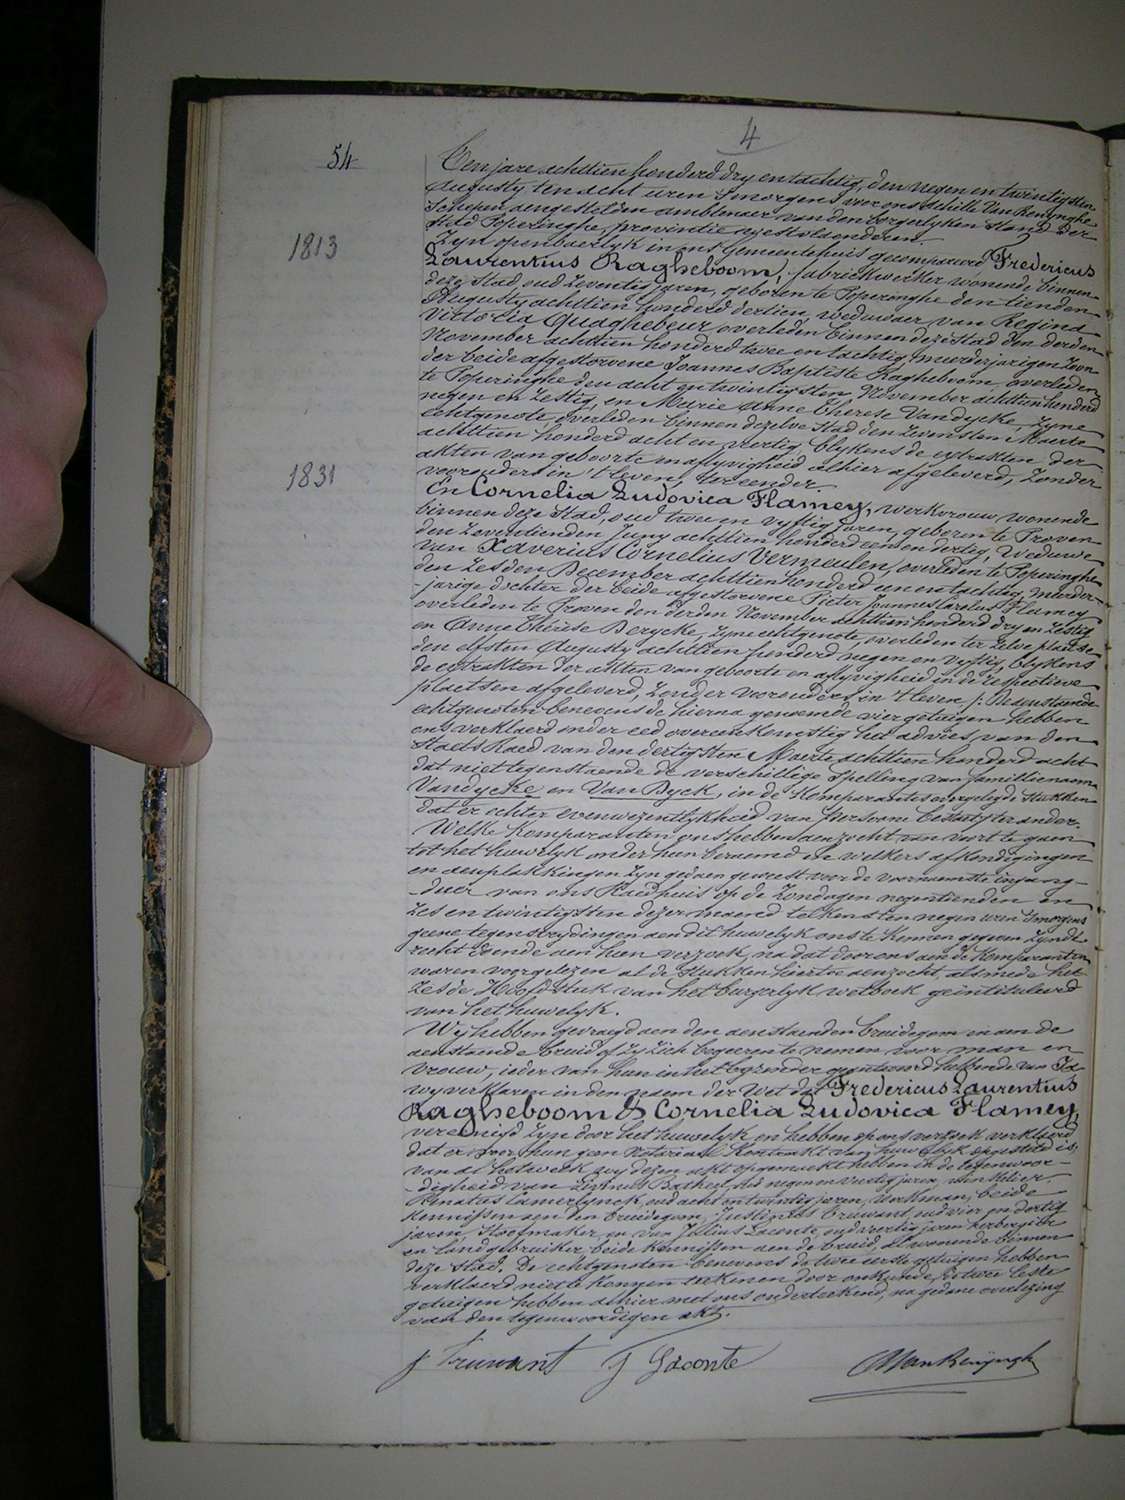 4
54
Ten jare achttien honderd dry en tachtig, den negen en twintigsten
Augusty ten acht uren 's morgens voor ons Achille Van Renynghe
Schepen aengestelden ambtenaer van den borgerlyken stand der
stad Poperinghe, provintie westvlaenderen
Zyn openbaerlyk in ons gemeentehuis gecompareerd Fredericus
1813
Laurentius Ragheboom, fabriekwerker wonende binnen
deze stad, oud zeventig jaren, geboren te Poperinghe den tienden
Augusty achttien honderd dertien, weduwaer van Regina
Victoria Quaghebeur overleden binnen deze stad den derden
November achttien honderd twee en tachtig, meerderjarigen zoon
der beide afgestorvene Joannes Baptiste Ragheboom, overleden
te Poperinghe den acht en twintigsten November achttien honderd
negen en zestig, en Marie Anne Therese Vandycke, zyne
echtgenote, overleden binnen dezelve stad den zevensten Maerte
achttien honderd acht en veertig, blykens de extrakten der
akten van geboorte en aflyvigheid alhier afgeleverd, zonder
voorouders in 't leven, ter eender
1831
En Cornelia Ludovica Flamey, werkvrouw, wonende
binnen deze stad, oud twee en vyftig jaren, geboren te Proven
den zeventienden Juny achttien honderd een en dertig, weduwe
van Xaverius Cornelius Vermeulen, overleden te Poperinghe
den zesden December achttien honderd een en tachtig, meerder-
-jarige dochter der beide afgestorvene Pieter Joannes Carolus Flamey
overleden te Proven den derden November achttien honderd dry en zestig
en Anne Thérèse Derycke, zyne echtgenote, overleden ter zelve plaetse
den elfsten Augusty achttien honderd negen en vyftig, blykens
de extrakten der akten van geboorte en aflyvigheid in de respectieve
plaetsen afgeleverd, zonder voorouders in 't leven /: De aenstaende
echtgenoten benevens de hierna genoemde vier getuigen hebben
ons verklaerd onder eed overeenkomstig het advies van den
staets Raed van den dertigsten Maerte achttien honderd acht
dat niettegenstaende de verschillige spelling van familienaem
Vandycke en Van Dyck, in de Komparantes overgelegde stukken
dat er echter evenwezentlykheid van persoone bestaet, ter ander.
Welke komparanten ons hebben aenzocht van voort te gaen
tot het huwelyk onder hun beraemd en welkers afkondigingen
en aenplakkingen zyn gedaen geweest voor de voornaemste ingang-
-deur van ons Raedhuis op de zondagen negentienden en
zes en twintigsten dezer maend telkens ten negen uren 's morgens
geene tegenstrydingen aen dit huwelyk ons te kennen gegeven zynde
recht doende aen hun verzoek, na dat door ons aen de Komparanten
waren voorgelezen al de stukken hiertoe aenzocht, alsmede het
zesde Hoofdstuk van het burgerlyk wetboek geïntituleerd
van het huwelyk.
Wy hebben gevraegd aen den aenstaenden bruidegom en aen de
aenstaende bruid of zy zich begeeren te nemen voor man en
vrouw, ieder van hun in het byzonder geantwoord hebbende van Ja
wy verklaren in den naem der Wet dat Fredericus Laurentius
Ragheboom & Cornelia Ludovica Flamey,
vereenigd zyn door het huwelyk en hebben op ons verzoek verklaerd
dat er door hun geen Notariael Kontrakt van huwelyk opgesteld is,
van al hetwelk wy dezen akt opgemaekt hebben in de tegenwoor-
-digheid van oud negen en veertig jaren, winkelier,
Camerlynck, oud acht en twintig jaren, Werkman, beide
kennissen aen den bruidegom, Justinus Cruwant, oud vier en dertig
jaren, Stoofmaker, en van Julius Laconte, oud veertig jaren herbergier
en landgebruiker, beide kennissen aen de bruid, al wonende binnen
deze stad. De echtgenoten benevens de twee eerste getuigen hebben
verklaerd niet te konnen teekenen door onkunde, de twee leste
getuigen hebben alhier met ons onderteekend, na gedane overlezing
van den tegenwoordigen akt.